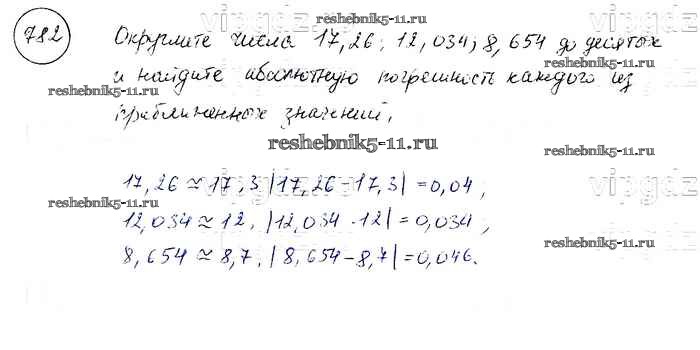 782
Округлите числа 17,26; 12,034; 8,654 до десятых
и найдите абсолютную погрешность каждого из
приближенных значений.
17,26 ≈ 17,3 |17,26 - 17,3| = 0,04;
12,034 ≈ 12. |12,034 - 12| = 0,034;
8,654 ≈ 8,7. |8,654 - 8,7| = 0,046.
vipgdz
reshebnik5-11.ru
vipgdz
reshebnik5-11.ru
reshebnik5-11.ru
reshebnik5-11.ru
reshebnik5-11.ru
vipgdz
reshebnik5-11.ru
vipgdz
reshebnik5-11.ru